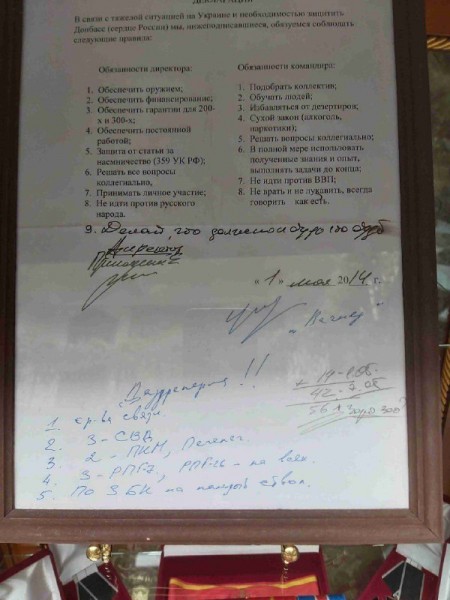 ДЕКЛАРАЦИЯ
В связи с тяжелой ситуацией на Украине и необходимостью защитить
Донбасс (сердце России) мы, нижеподписавшиеся, обязуемся соблюдать
следующие правила:
Обязанности директора:
1. Обеспечить оружием;
2. Обеспечить финансирование;
3. Обеспечить гарантии для 200-
х и 300-х;
4. Обеспечить постоянной
работой;
5. Защита от статьи за
наемничество (359 УК РФ);
6. Решать все вопросы
коллегиально,
7. Принимать личное участие;
8. Не идти против русского
народа.
Обязанности командира:
1. Подобрать коллектив;
2. Обучать людей;
3. Избавляться от дезертиров;
4. Сухой закон (алкоголь,
наркотики);
5. Решать вопросы коллегиально;
6. В полной мере использовать
полученные знания и опыт,
выполнять задачи до конца;
7. Не идти против ВВП;
8. Не врать и не , всегда
говорить как есть.
9. Делай, что должно и будь что будет
Директор
« 1 » мая 2014 г.
19-
42-
561
!!
1 ср-ва связи.
2. 3-СВД
3 2 - ПКМ, Печенег.
4. 3-РПГ-7, РПГ-26 - на всех.
5. По 3 БК на каждый ствол.